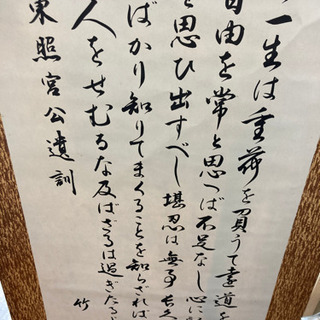 一生は重荷を負うて遠き道を
自由を常と思へば不足なし心に
と思ひ出すべし堪忍は無事長久
ばかり知りてまくることを知らざれば
人をせむるな及ばざるは過ぎたる
竹
東照宮公遺訓